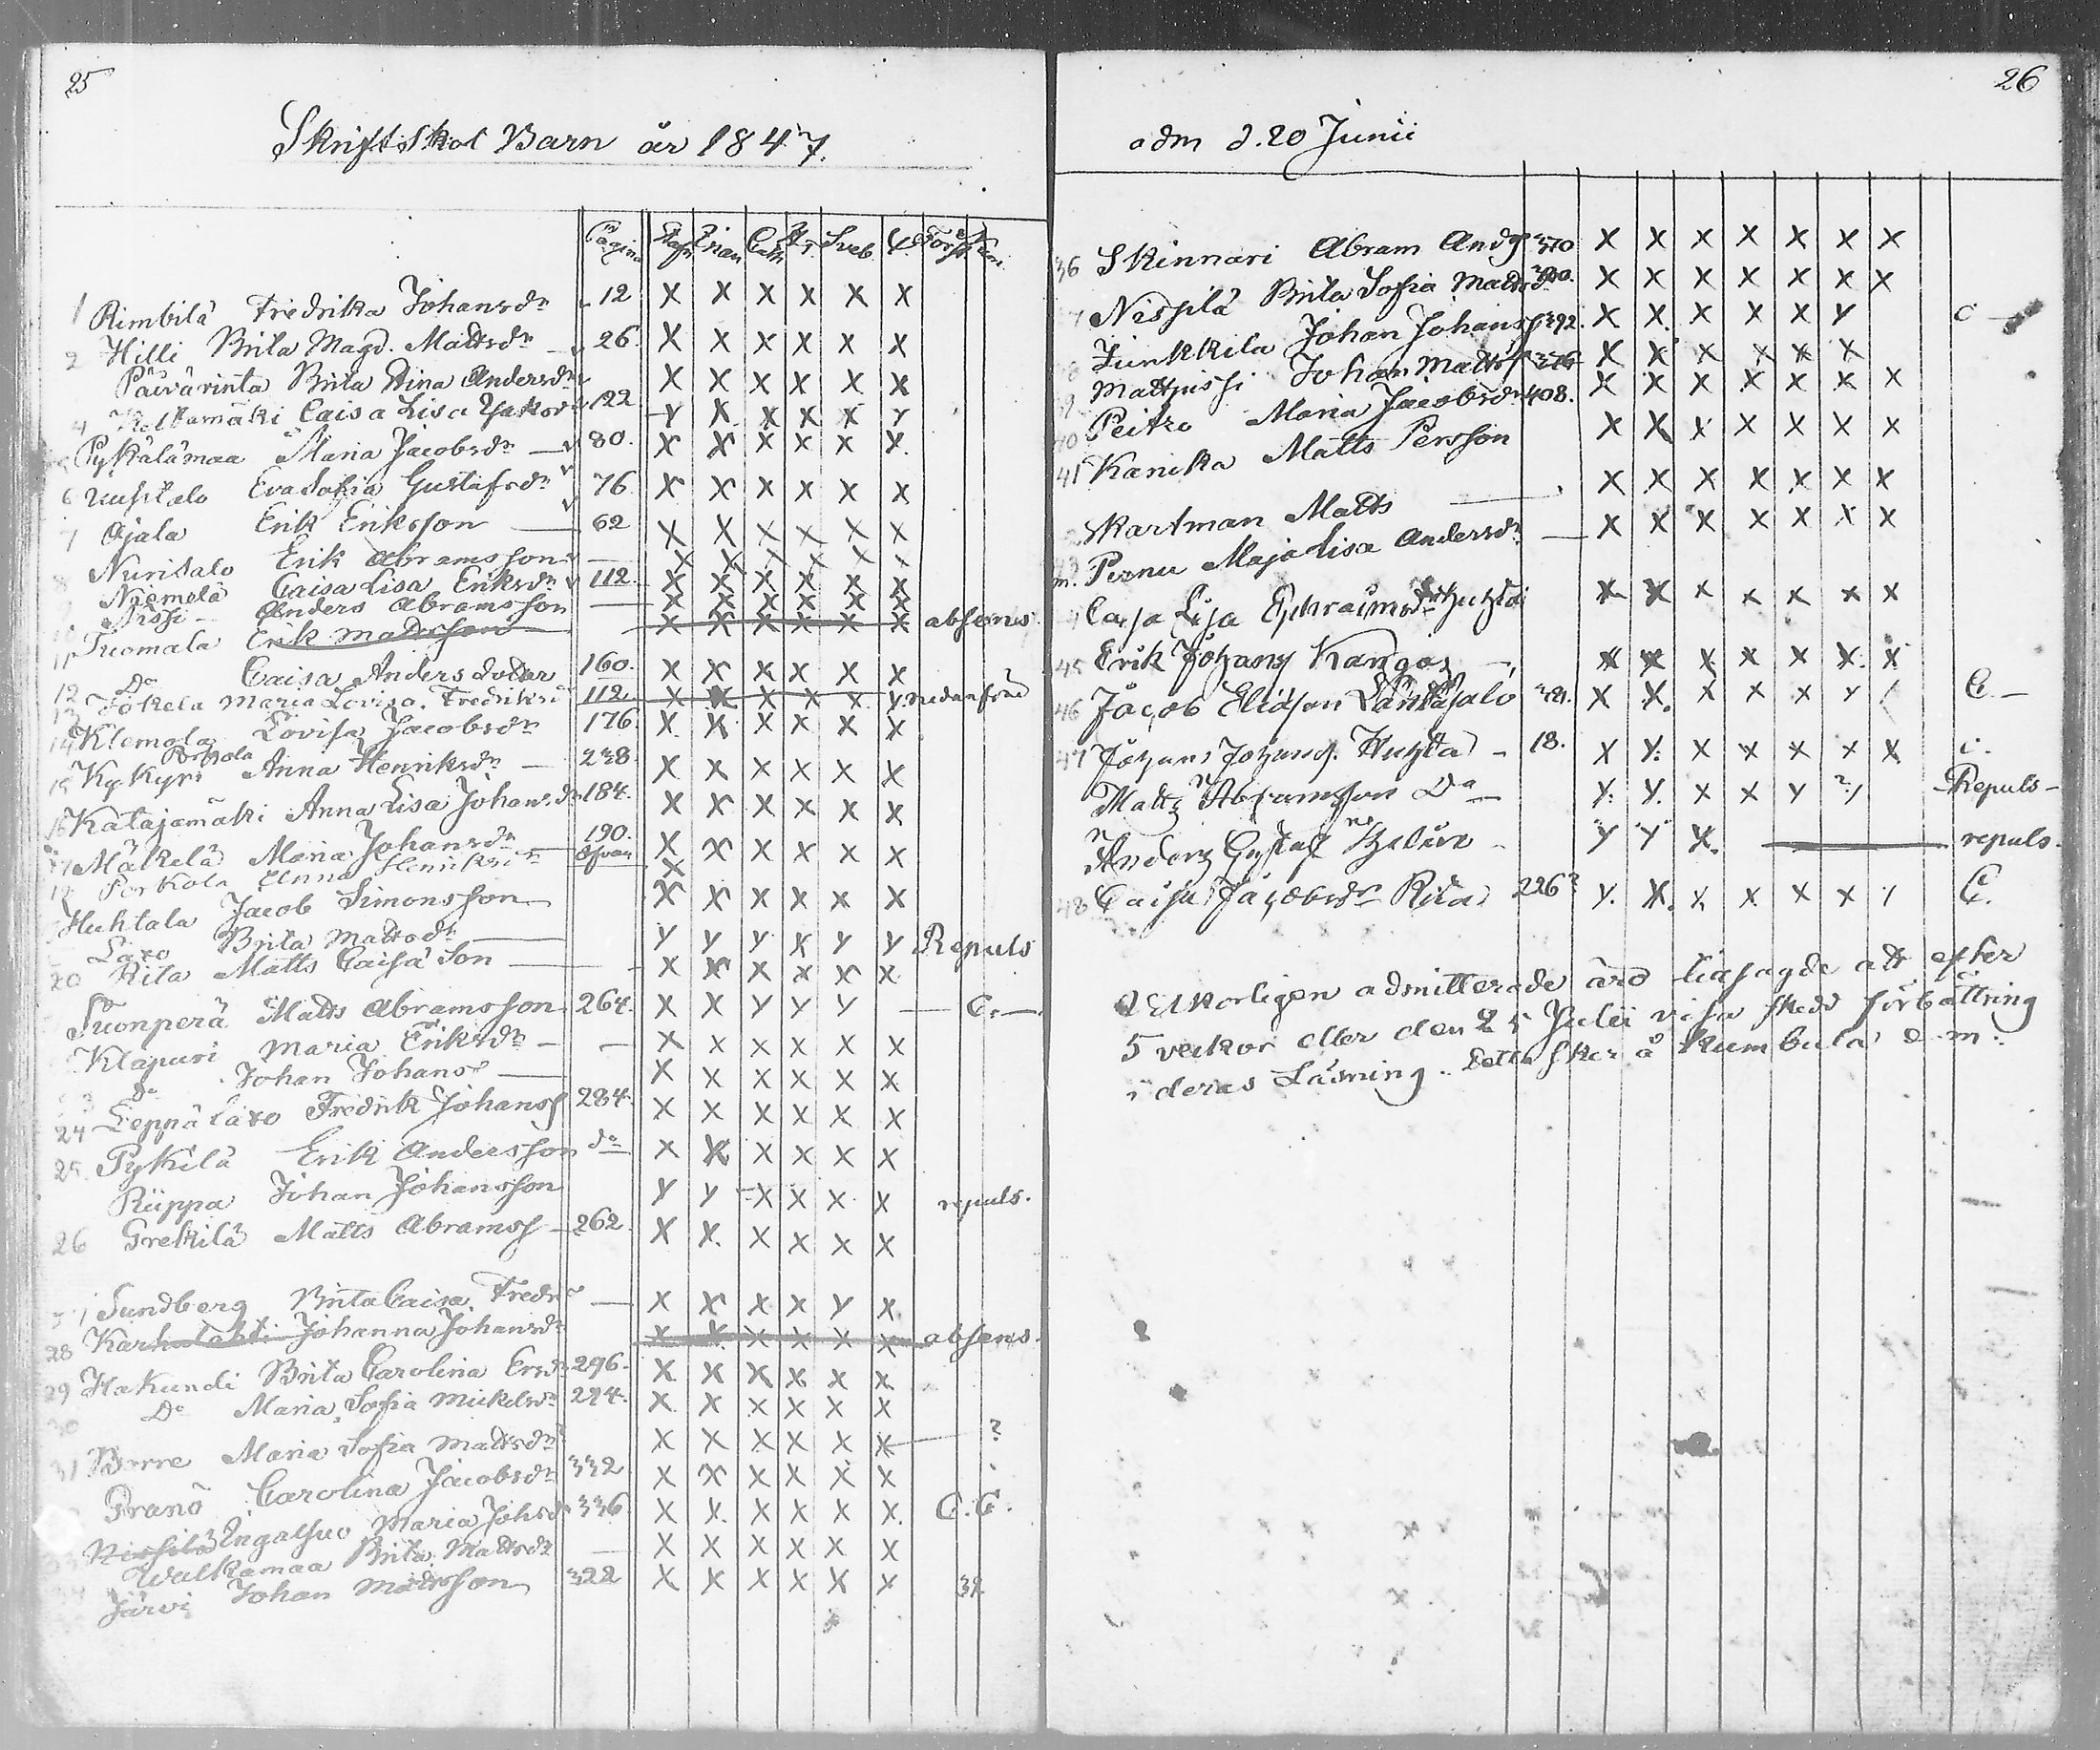 25
Skriftskol Barn år 1847.
Pagina Cath Sveb. Först
1 Rimbilä Fredrika Johansdr 12 X X X X X X
2 Hilli Brita Magd. Mattsdr 26. X X X X X X
Päivärinta Brita Stina Andersdr X X X X X X
4 Caisa Lisa 122 y X X X X y
Pykälämaa Maria Jacobsdr 80. X X X X X X.
6 Uusitalo Eva Sofia Gustafsdr 76. X X X X X X
7 Ojala Erik Eriksson 62 X X X X X X
8 Nuritalo Erik Abramsson X X X X X X
Niemelä Caisa Lisa Eriksdr 112. X X X X X X
Nissi Anders Abramsson X X X X X X
11 Tuomala Erik Mattsson X X X X X X absens
12 Do Caisa Anders dotter 160. X X X X X X
13 Jokela Maria Lovisa Fredriks 112. X X X X X y. nedanfrå
14 Klemola Lovisa Jacobsdr 176. X X X X X X
Porkola
15 Kykyri Anna Henriksdr 238. X X X X X X
16 Katajamäki Anna Lisa Johansdr 184. X X X X X X
17 Mäkelä Maria Johansdr 190. X X X X X X
18 Porkola Anna Henriksdr ofvan X
Huhtala Jacob Simonsson X X X X X X
Laxo Brita Mattsdr y y y X y y Repuls
20 Rita Matts Caisä Son X X X X X X
Suonperä Matts Abramsson 264. X X y y y C.
Klapuri Maria Eriksdr X X X X X X
do Johan Johanss X X X X X X
24 Leppälaxo Fredrik Johanss 284. X X X X X X
25. Pykilä Erik Andersson do X X X X X X
Riippa Johan Johansson y y X X X X repuls.
26 Grekilä Matts Abramss 262. X X. X X X X
Sundberg Brita Caisa Fredr X X X X y X
28 Karhulahti Johanna Johansdr X X X X X X absens.
29 Hakundi Brita Carolina Ersdr 296. X X X X X X
30 Do Maria Sofia Mickelsdr 294. X X X X X X
31 Borre Maria Sofia Mattsdr X X X X X X ?
Pranö Carolina Jacobsdr 332 X X X X X X
Nissilä Ingalsuo Maria Johsdr 336 X X. X X X X. C.C.
Walkamaa Brita Mattsdr X X X X X X
Järvi Johan Mattsson 322 X X X X X X
26
adm d. 20 Junii
36 Skinnari Abram Andss 370 X X X X X X X
7 Nissilä Brita Sofia Mattsdr X X X X X X X
Junkkila Johan Johanss 392. X X. X X X y C
Mattjussi Johan Mattss 376 X X X X X X
40 Peitzo Maria Jacobsdr 408. X X X X X X X
41 Kanika Matts Persson X X X X X X X
Kartman Matts X X X X X X X
Pernu Maja Lisa Andersdr X X X X X X X
Caisa Lisa Ephraimsdr Huhta X X X X X X X
45 Erik Johans Kangas X X X X X X. X
46 Jacob Eliasson Länttäsalo X X. X X X y C.
47 Johans Johanss. Huhta 18. X y. X X X X X C.
Matts Abramsson Do y. y. X X y ? Repuls
Anders Gustaf y y X. repuls.
48 Caisa Jacobsdr Rita 226 y. X. X X X X C.
Vilkorligen admitterade äro tillsagde att efter
5 veckor eller den 25 Julii visa skedd förbättring
i deras Läsning. Detta sker å Kumbula d.m.